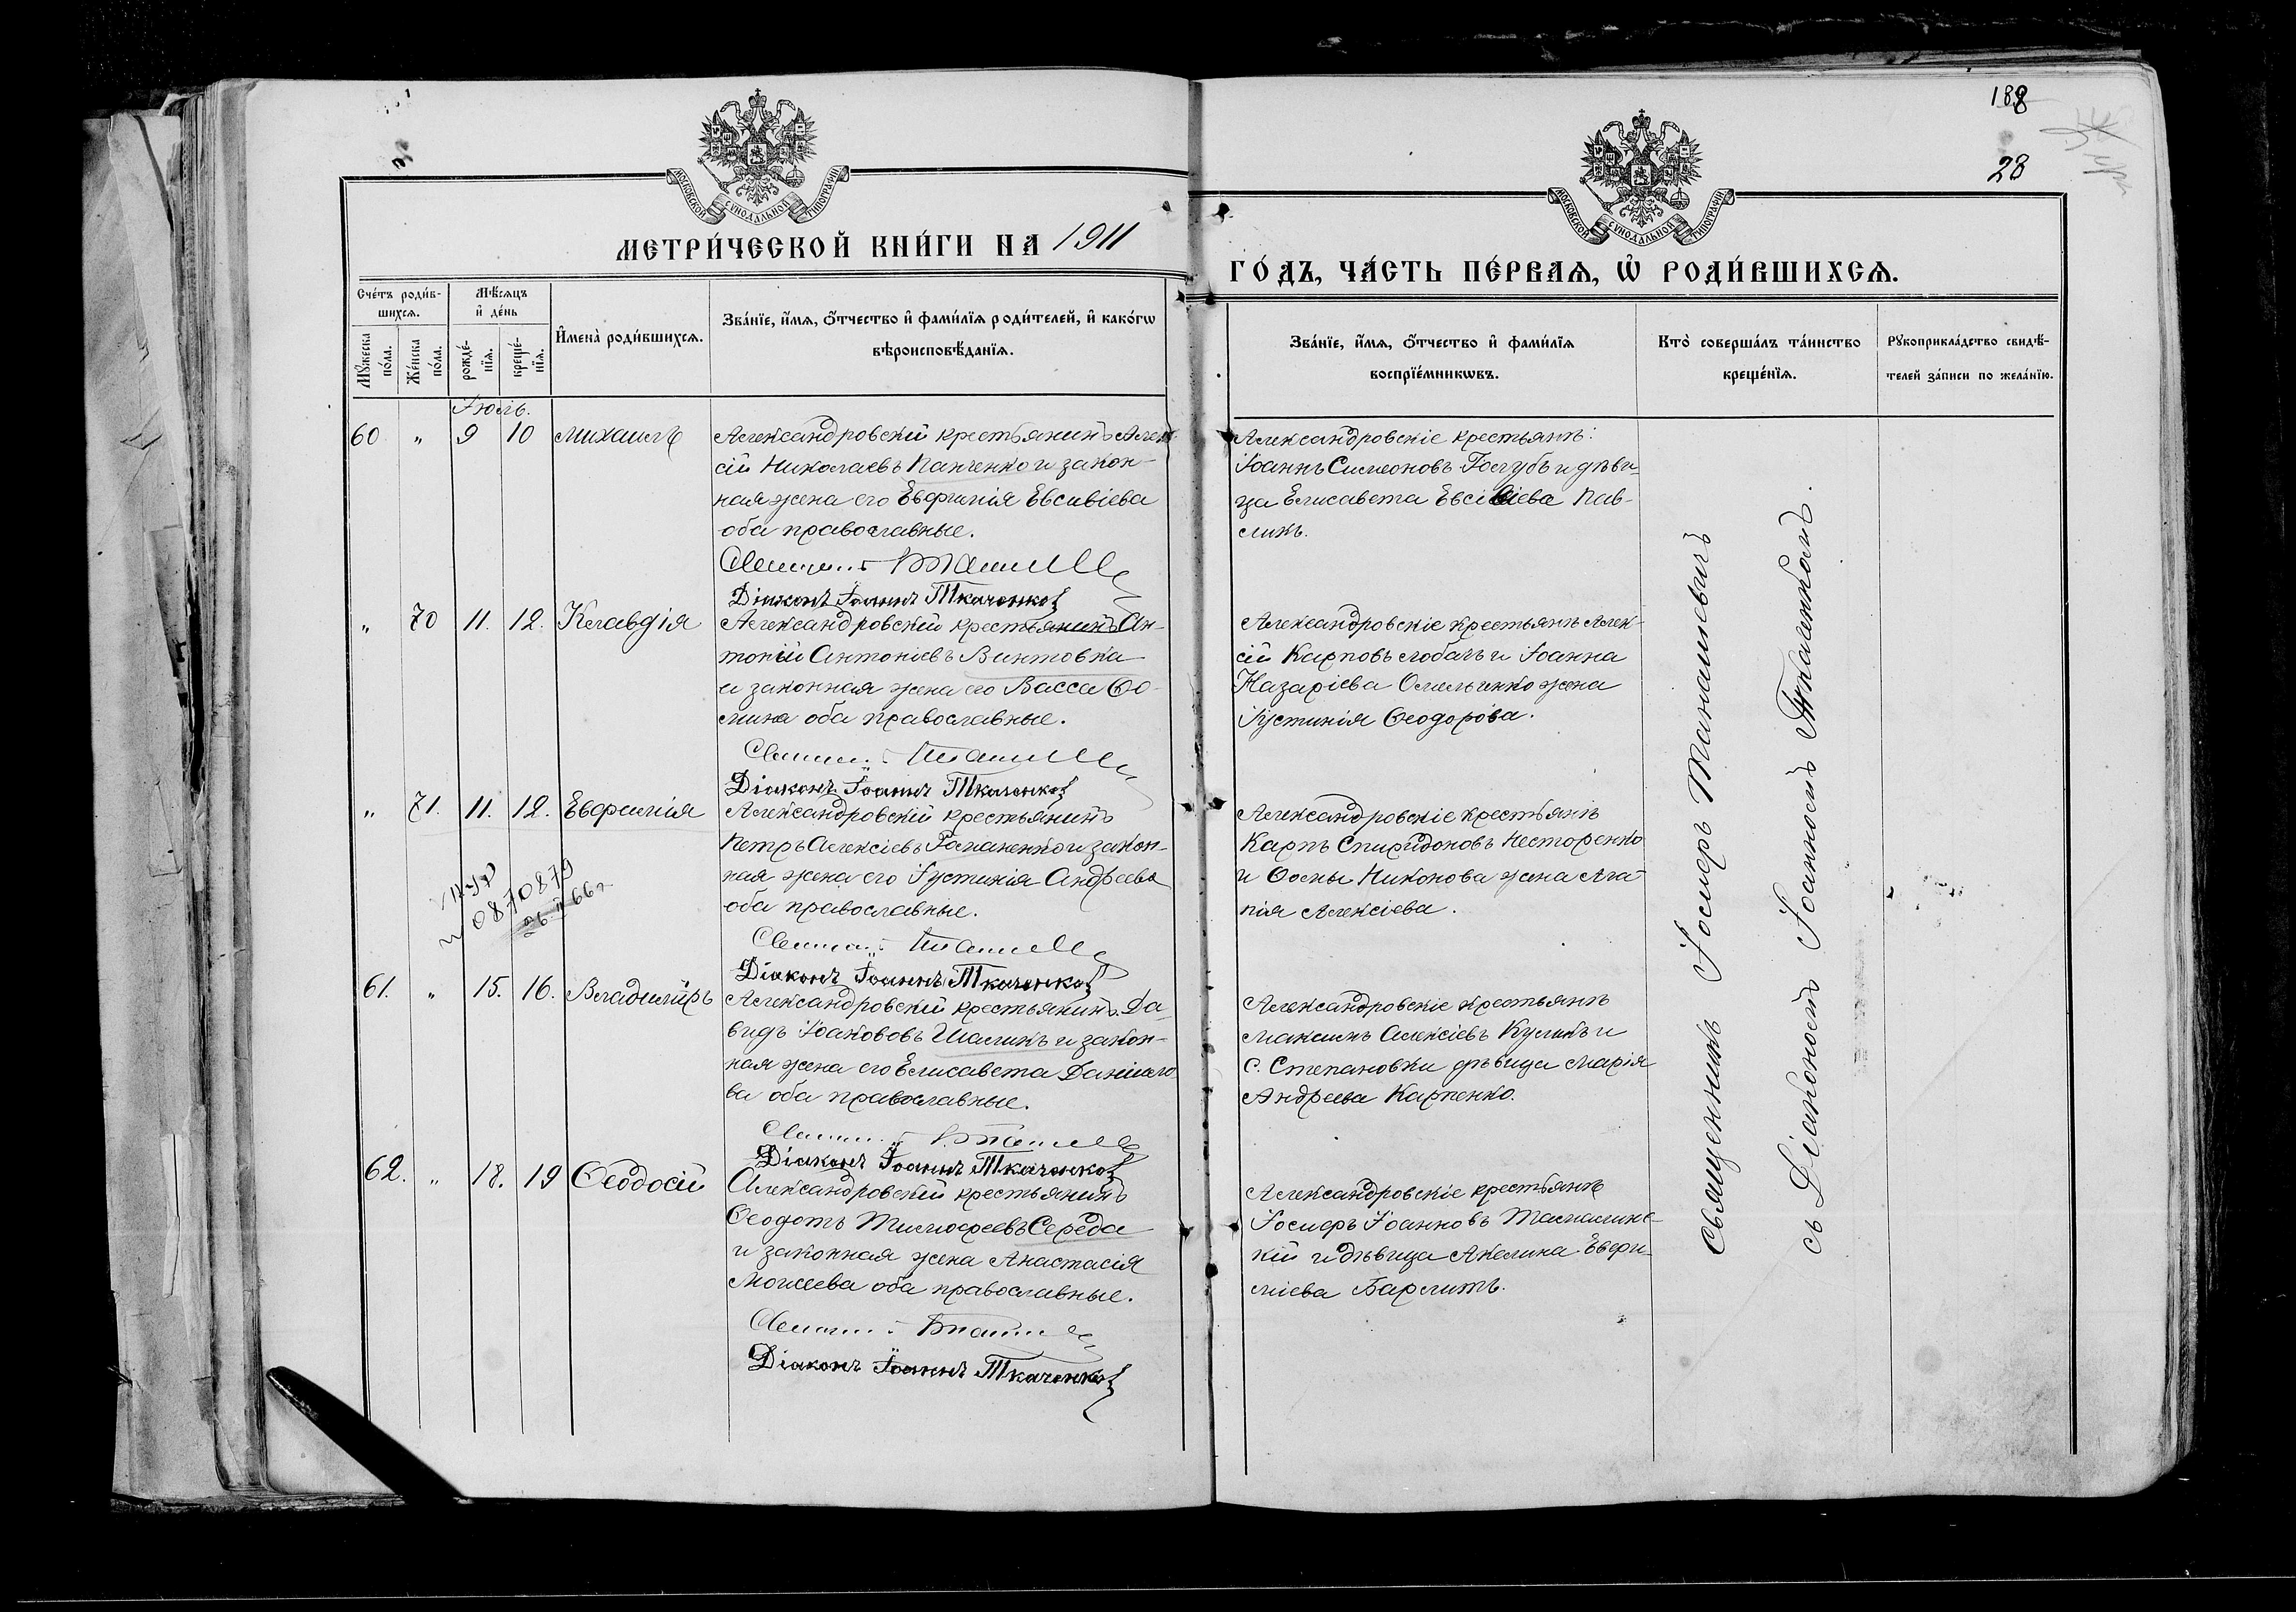 188
28
МОСКОВСКОЙ СѴНОДАЛЬНОЙ ТИПОГРАФІИ
МОСКОВСКОЙ СѴНОДАЛЬНОЙ ТИПОГРАФІИ
МЕТРИ́ЧЕСКОЙ КНИ́ГИ НА 1911
ГО́ДЪ, ЧА́СТЬ ПЕ́РВАѦ, Ѽ РОДИ́ВШИХСѦ.
Сче́тъ роди́в-
шихсѧ.
Мꙋ́жеска по́ла.
Же́нска по́ла.
Мѣ́сѧцъ
и҆ де́нь
рожде́-
нїѧ.
креще́-
нїѧ.
И҆мена̀ роди́вшихсѧ.
Зва́нїе, и҆́мѧ, ѻ҆́тчество и҆ фами́лїѧ роди́телей, и҆ како́гѡ
вѣроисповѣ́данїѧ.
Зва́нїе, и҆́мѧ, ѻ҆́тчество и҆ фами́лїѧ
воспрїе́мникѡвъ.
Кто̀ соверша́лъ та́инство
креще́нїѧ.
Рꙋкоприкла́дство свидѣ́-
телей за́писи по жела́нїю.
Іюль.
60 " 9 10 Михаилъ
Александровскій крестьянинъ Алек-
сій Николаевъ Панченко и закон-
ная жена его Евфимія Евсивіева
оба православные.
Діаконъ Іоаннъ Ткаченко
Александровскіе крестьяне:
Іоаннъ Симеоновъ Голубъ и дѣви-
ца Елисавета Евсівіева Пав-
ликъ.
" 70 11. 12. Клавдія
Александровскій крестьянинъ Ан-
тоній Антоніевъ Винтовка
и законная жена его Васса Ѳо-
мина оба православные.
Діаконъ Іоаннъ Ткаченко
Александровскіе крестьяне Алек-
сій Карповъ Лобачъ и Іоанна
Назаріева Омельченко жена
Іустинія Ѳеодорова.
" 71. 11. 12. Евфимія
Александровскій крестьянинъ
Петръ Алексіевъ Романенко и закон-
ная жена его Іустинія Андреева
оба православные.
Діаконъ Іоаннъ Ткаченко
0870879
Александровскіе крестьяне
Карпъ Спиридоновъ Несторенко
и Ѳомы Никонова жена Ага-
пія Алексіева.
61. " 15. 16. Владиміръ
Александровскій крестьянинъ Да-
видъ Іоанововъ Шамикъ и закон-
ная жена его Елисавета Даніило-
ва оба православные.
Діаконъ Іоаннъ Ткаченко
Александровскіе крестьяне
Максимъ Алексіевъ Куликъ и
с. Степановки дѣвица Марія
Андреева Карпенко.
62. " 18. 19 Ѳеодосій
Александровскій крестьянинъ
Ѳеодотъ Тимофеевъ Середа
и законная жена Анастасія
Моисеева оба православные.
Діаконъ Іоаннъ Ткаченко
Александровскіе крестьяне
Іосифъ Іоанновъ
кій и дѣвица Акелина Евфи-
міева
Священникъ Іосифъ Манашевичъ
съ Діакономъ Іоанномъ Ткаченкомъ.